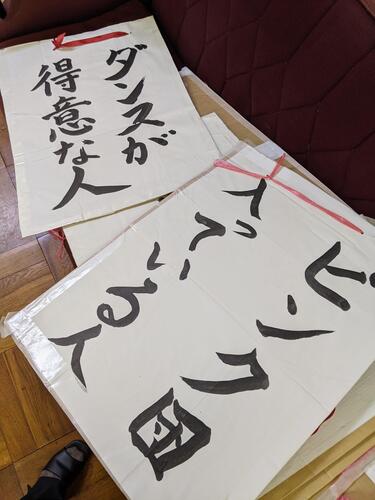 ダンスが
得意な人
ピンク団
入っている人